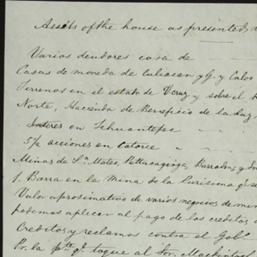 Assets of the house as presented,
Varios deudores cosa de
Casas de moneda de Culiacan y G. y Calvo
Terrenos en el estado de Veraz y sobre el
Norte, Hacienda de Beneficio de la Luz
Interes en Tehuantepec
5/2 acciones en Catorce
Minas de Sn. Mateo, Barradon, y
1 Barra en la Mina de la Purisima
Valor aprosimativo de varios negocios de
podemos aplicar al pago de los creditos
Creditos y reclamos contra el Gobo.
Pr. la pte. q. toque al Sor.